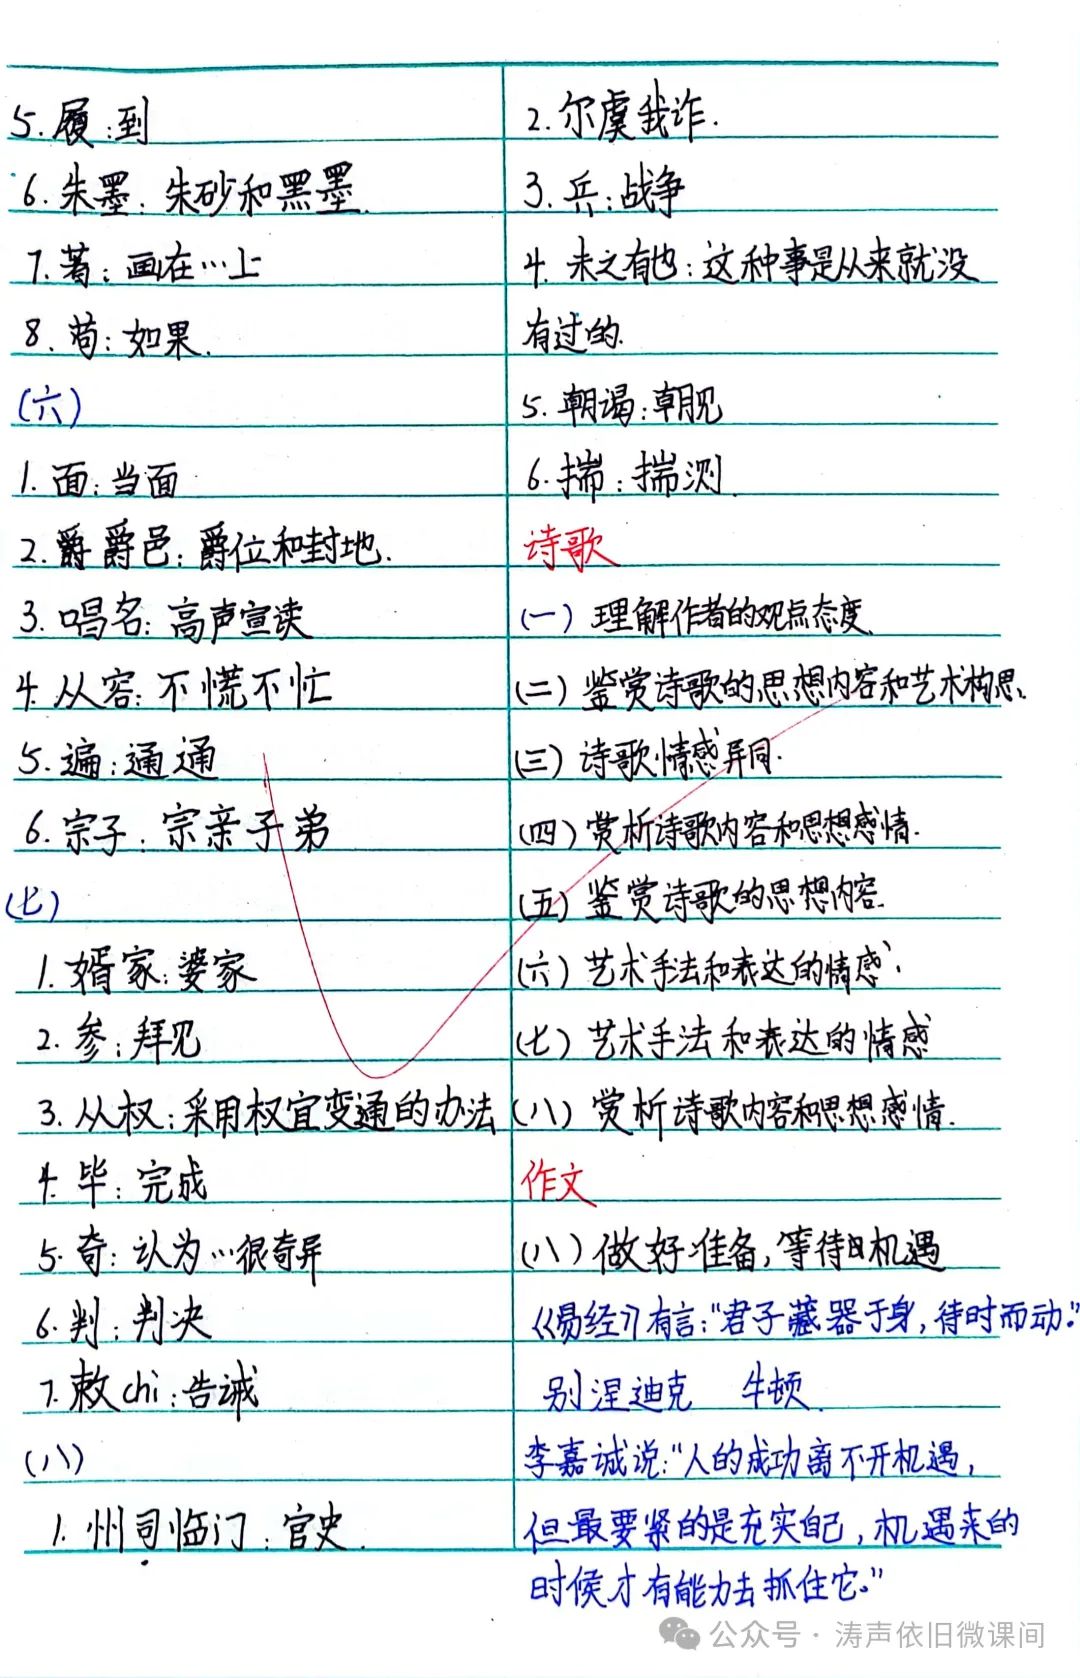 5. 履：到
6. 朱墨：朱砂和黑墨.
7. 著：画在…上
8. 苟：如果.
(六)
1. 面：当面
2. 爵 爵邑：爵位和封地.
3. 唱名：高声宣读
4. 从容：不慌不忙
5. 遍：通通
6. 宗子：宗亲子弟
(七)
1. 婿家：婆家
2. 参：拜见
3. 从权：采用权宜变通的办法
4. 毕：完成
5. 奇：认为…很奇异
6. 判：判决
7. 敕chi：告诫
(八)
1. 州司临门：官史.
2. 尔虞我诈.
3. 兵：战争
4. 未之有也：这种事是从来就没
有过的.
5. 朝谒：朝见
6. 揣：揣测.
诗歌
(一) 理解作者的观点态度.
(二) 鉴赏诗歌的思想内容和艺术构思.
(三) 诗歌情感异同.
(四) 赏析诗歌内容和思想感情.
(五) 鉴赏诗歌的思想内容.
(六) 艺术手法和表达的情感.
(七) 艺术手法和表达的情感
(八) 赏析诗歌内容和思想感情.
作文
(八) 做好准备，等待机遇
《易经》有言："君子藏器于身，待时而动."
别涅迪克 牛顿.
李嘉诚说："人的成功离不开机遇，
但最要紧的是充实自己，机遇来的
时候才有能力去抓住它。"
公众号·涛声依旧微课间